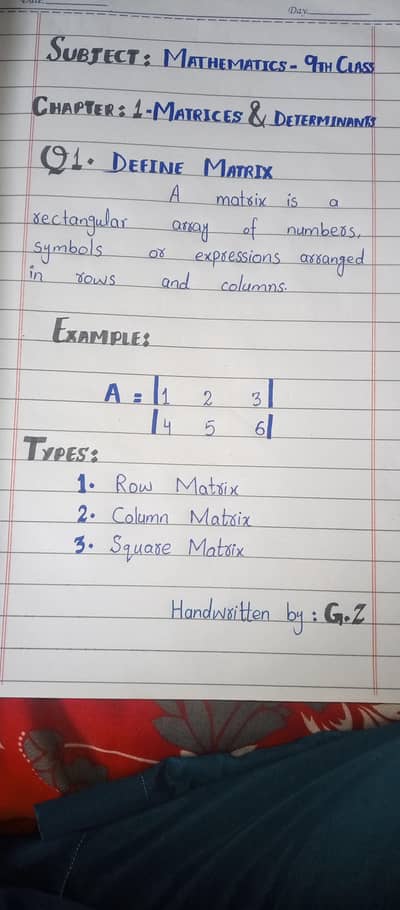 Day
SUBJECT: MATHEMATICS- 9TH CLASS
CHAPTER: 1-MATRICES & DETERMINANTS
Q1. DEFINE MATRIX
A matrix is a
rectangular array of numbers,
symbols or expressions arranged
in rows and columns.
EXAMPLE:
A = |1 2 3|
|4 5 6|
TYPES:
1. Row Matrix
2. Column Matrix
3. Square Matrix
Handwritten by: G.Z